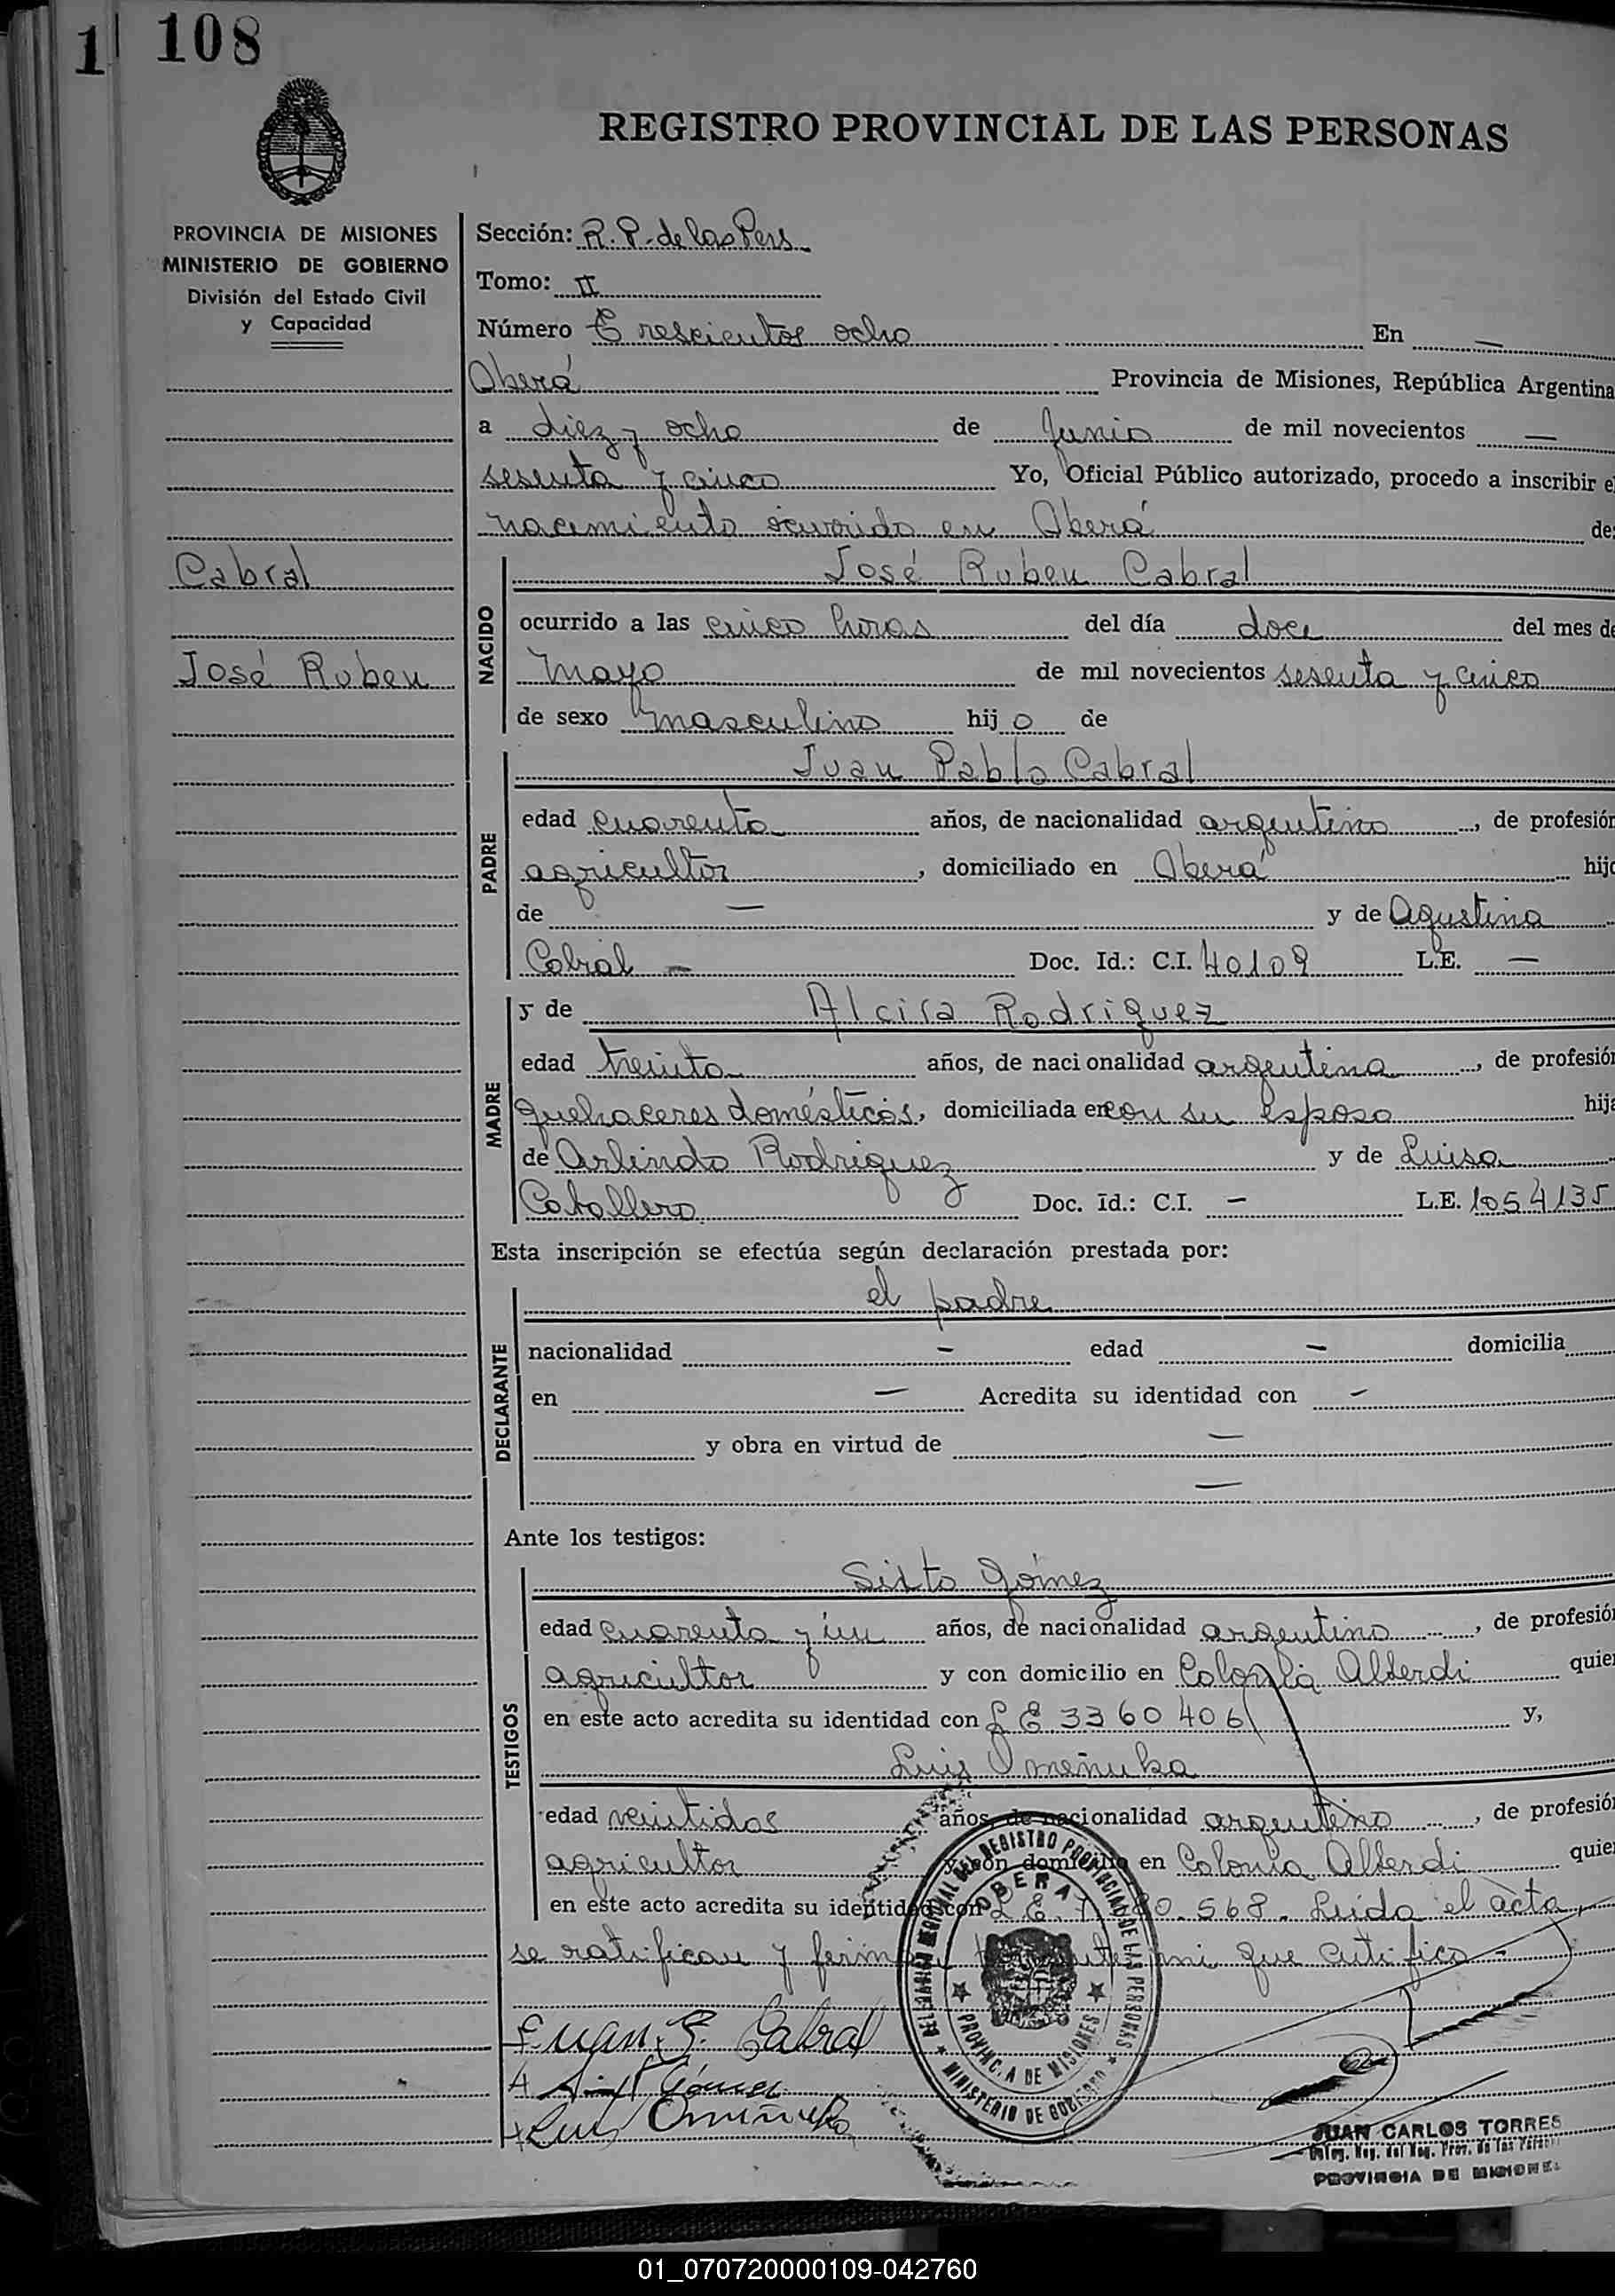 1 108
REGISTRO PROVINCIAL DE LAS PERSONAS
PROVINCIA DE MISIONES
MINISTERIO DE GOBIERNO
División del Estado Civil
y Capacidad
Sección: R. P. de las Pers
Tomo: II
Número Trescientos ocho En —
Oberá Provincia de Misiones, República Argentina
a diez y ocho de Junio de mil novecientos —
sesenta y cinco Yo, Oficial Público autorizado, procedo a inscribir e
nacimiento ocurrido en Oberá de:
Cabral
José Ruben
NACIDO
José Ruben Cabral
ocurrido a las cinco horas del día doce del mes de
Mayo de mil novecientos sesenta y cinco
de sexo masculino hijo de
PADRE
Juan Pablo Cabral
edad cuarenta años, de nacionalidad argentino, de profesión
agricultor, domiciliado en Oberá hijo
de — y de Agustina
Cabral — Doc. Id.: C.I. 40109 L.E. —
MADRE
y de Alcira Rodriguez
edad treinta años, de nacionalidad argentina, de profesión
quehaceres domésticos, domiciliada en con su esposo hija
de Arlindo Rodriguez y de Luisa
Caballero Doc. Id.: C.I. — L.E. 1054135
Esta inscripción se efectúa según declaración prestada por:
DECLARANTE
el padre
nacionalidad — edad — domicilia
en — Acredita su identidad con —
y obra en virtud de —
—
Ante los testigos:
TESTIGOS
Sixto Gómez
edad cuarenta y un años, de nacionalidad argentino, de profesión
agricultor y con domicilio en Colonia Alberdi quien
en este acto acredita su identidad con L E 3360406 y,
Luis Omeñuka
edad veintidos años, de nacionalidad argentino, de profesión
agricultor y con domicilio en Colonia Alberdi quien
en este acto acredita su identidad con L.E. 80.568. Leída el acta,
se ratifican y firman ante mi que certifico —
Juan P. Cabral
Gómez
Luis Omeñuka
DELEGACION REGIONAL DEL REGISTRO PROVINCIAL DE LAS PERSONAS
MINISTERIO DE GOBIERNO
OBERA
PROVINCIA DE MISIONES
JUAN CARLOS TORRES
Deleg. Reg. del Reg. Prov. de las Personas
PROVINCIA DE MISIONES
01_070720000109-042760